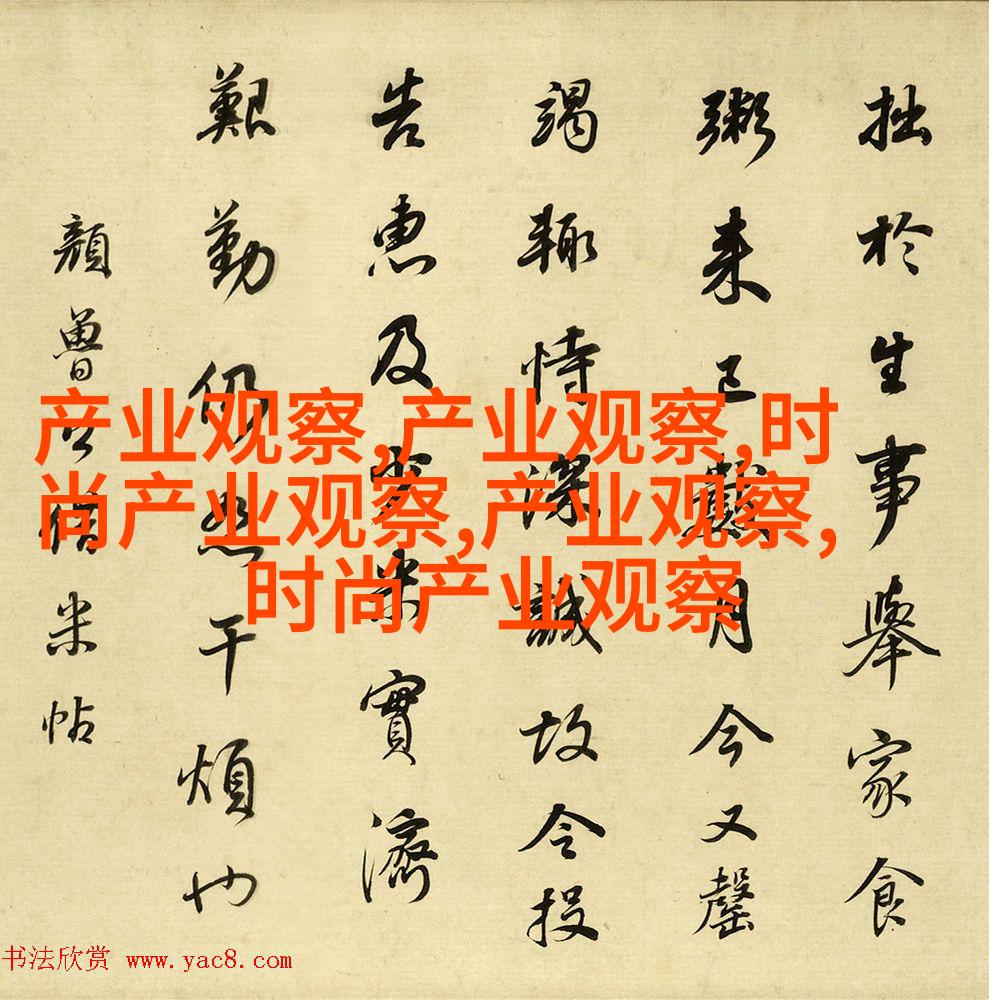 拙於生事舉家食
粥来已數月今又罄
竭輒恃深誠故令投
告惠及少米實濟
艱勤仍恕干煩也
顏魯公借米帖
产业观察,产业观察,时
尚产业观察,产业观察,
时尚产业观察
书法欣赏 www.yac8.com